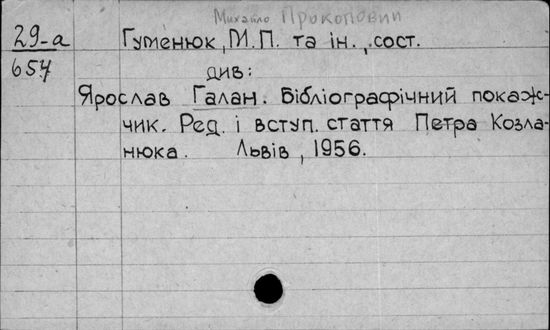 Михайло Прокопович
29-а Гуменюк, М.П. та ін., сост.
657 див:
Ярослав Галан. Бібліографічний покаж-
чик. Ред. і вступ. стаття Петра Козла-
нюка. Львів, 1956.